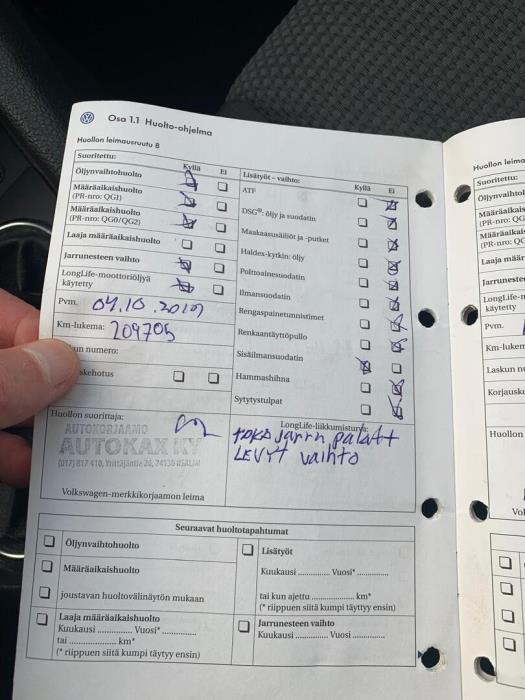 Osa 1.1 Huolto-ohjelma
Huollon leimausruutu B
Suoritettu: Kyllä Ei
Öljynvaihtohuolto
Määräaikaishuolto
(PR-nro: QG1)
Määräaikaishuolto
(PR-nro: QG0/QG2)
Laaja määräaikaishuolto
Jarrunesteen vaihto
LongLife-moottoriöljyä
käytetty
Pvm. 04.10.2019
Km-lukema: 209705
un numero:
skehotus
Lisätyöt – vaihto: Kyllä Ei
ATF
DSG®: öljy ja suodatin
Maakaasusäiliöt ja -putket
Haldex-kytkin: öljy
Polttoainesuodatin
Ilmansuodatin
Rengaspainetunnistimet
Renkaantäyttöpullo
Sisäilmansuodatin
Hammashihna
Sytytystulpat
Huollon suorittaja:
AUTOKORJAAMO
AUTOKAX KY
(017) 817 410, Yrittäjäntie 26, 74130 IISALMI
Volkswagen-merkkikorjaamon leima
LongLife-liikkumisturva:
toka jarru palatt
LEVYt vaihto
Seuraavat huoltotapahtumat
Öljynvaihtohuolto
Määräaikaishuolto
joustavan huoltovälinäytön mukaan
Laaja määräaikaishuolto
Kuukausi .............. Vuosi* ..............
tai .................... km*
(* riippuen siitä kumpi täytyy ensin)
Lisätyöt
Kuukausi ............ Vuosi* ............
tai kun ajettu ................ km*
(* riippuen siitä kumpi täytyy ensin)
Jarrunesteen vaihto
Kuukausi ............ Vuosi ............
Huollon leima
Suoritettu:
Öljynvaihto
Määräaikais
(PR-nro: QG
Määräaikai
(PR-nro: QG
Laaja määr
Jarruneste
LongLife-
käytetty
Pvm.
Km-lukem
Laskun n
Korjausk
Huollon
Vol